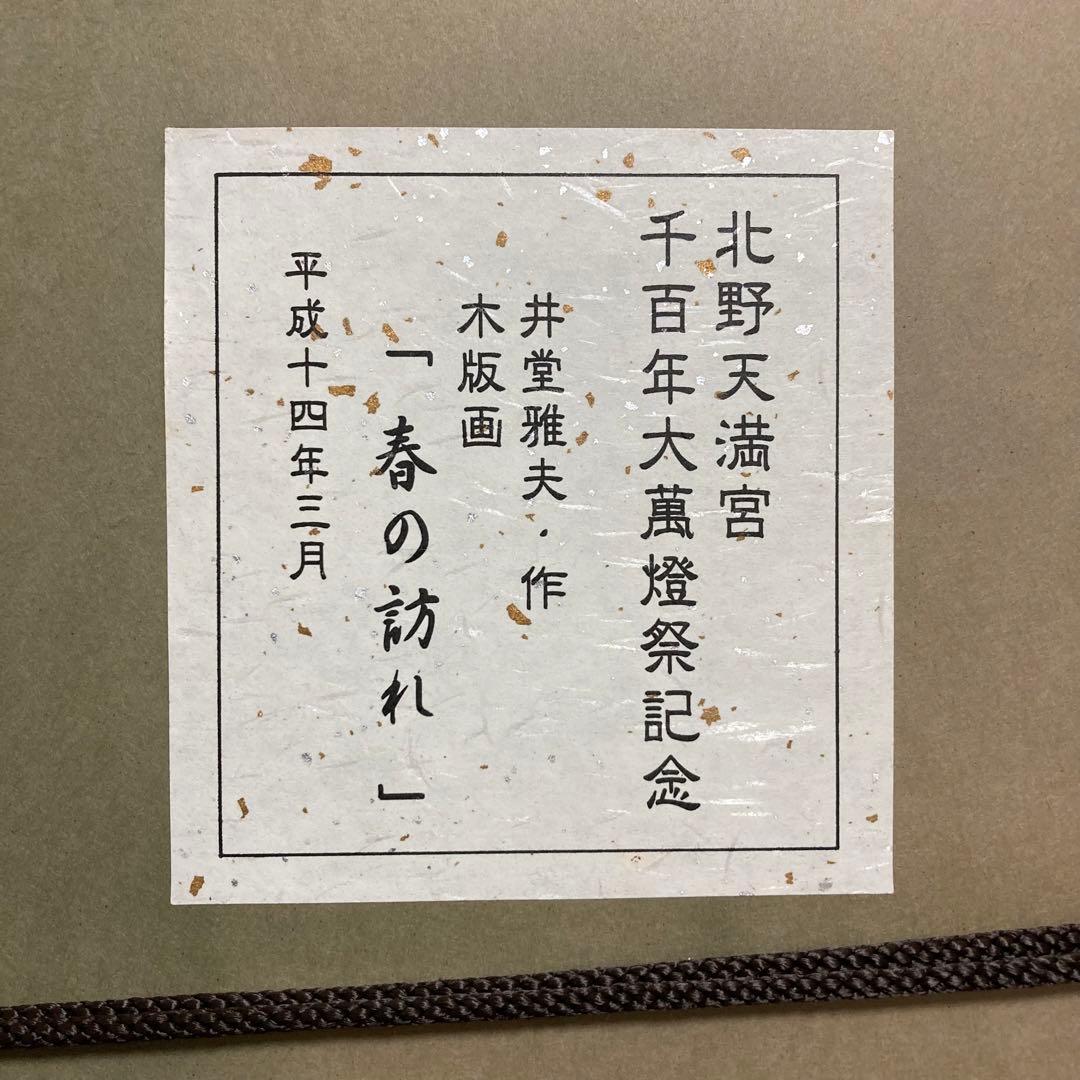 北野天満宮
千百年大萬燈祭記念
井堂雅夫・作
木版画
「春の訪れ」
平成十四年三月